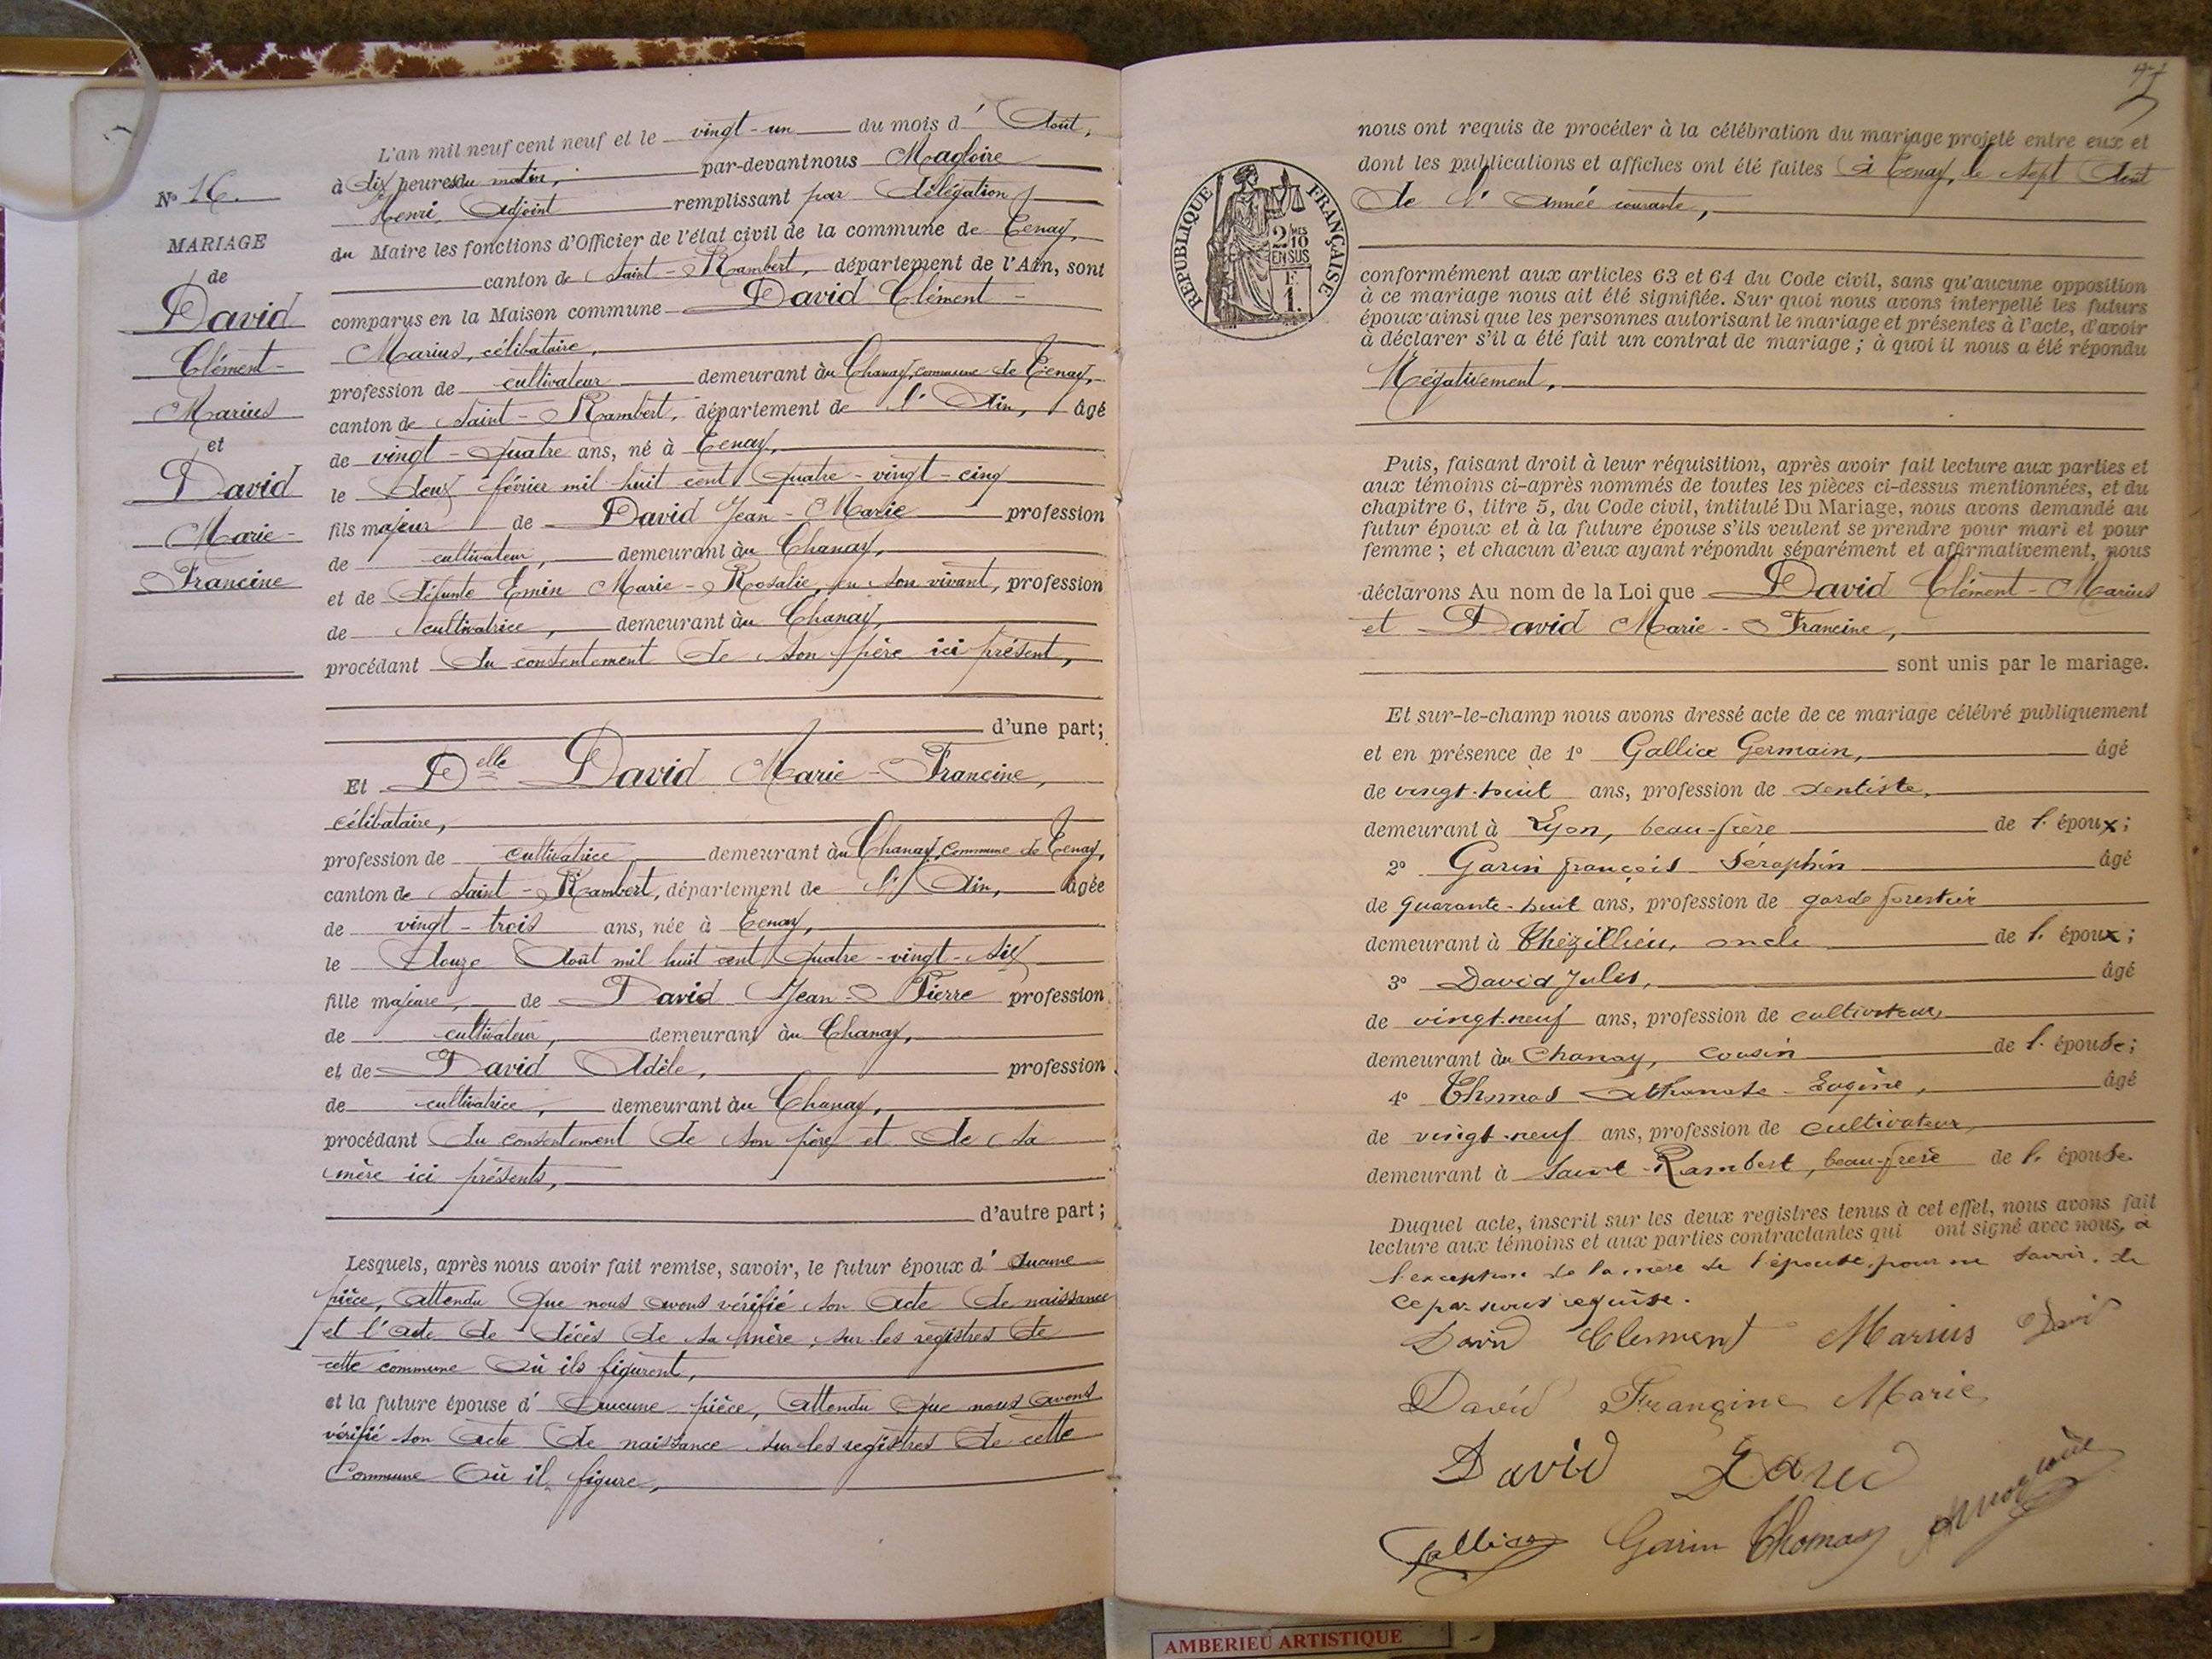 L'an mil neuf cent neuf et le vingt-un du mois d' Août,
à dix heures du matin, par-devant nous Magloire
Henri, Adjoint remplissant par délégation
du Maire les fonctions d'Officier de l'état civil de la commune de Tenay,
canton de Saint-Rambert, département de l'Ain, sont
comparus en la Maison commune David Clément-
Marius, célibataire,
profession de cultivateur demeurant au Chanay, commune de Tenay,
canton de Saint-Rambert, département de l'Ain, âgé
de vingt-quatre ans, né à Tenay,
le deux février mil huit cent quatre-vingt-cinq
fils majeur de David Jean-Marie profession
de cultivateur, demeurant au Chanay,
et de défunte Emin Marie-Rosalie, en son vivant, profession
de cultivatrice, demeurant au Chanay,
procédant du consentement de son père ici présent,
d'une part;
Et Delle David Marie-Francine,
célibataire,
profession de cultivatrice demeurant au Chanay, commune de Tenay,
canton de Saint-Rambert, département de l'Ain, âgée
de vingt-trois ans, née à Tenay,
le douze Août mil huit cent quatre-vingt-six
fille majeure, de David Jean-Pierre profession
de cultivateur, demeurant au Chanay,
et de David Adèle, profession
de cultivatrice, demeurant au Chanay,
procédant du consentement de son père et de sa
mère ici présents,
d'autre part;
Lesquels, après nous avoir fait remise, savoir, le futur époux d' aucune
pièce, attendu que nous avons vérifié son acte de naissance
et l'acte de décès de sa mère, sur les registres de
cette commune où ils figurent,
et la future épouse d' aucune pièce, attendu que nous avons
vérifié son acte de naissance sur les registres de cette
commune où il figure,
No 16.
MARIAGE
de
David
Clément-
Marius
et
David
Marie-
Francine
nous ont requis de procéder à la célébration du mariage projeté entre eux et
dont les publications et affiches ont été faites à Tenay, le sept Août
de l'année courante,
RÉPUBLIQUE FRANÇAISE
2/10 MES
EN SUS
F.
1.
conformément aux articles 63 et 64 du Code civil, sans qu'aucune opposition
à ce mariage nous ait été signifiée. Sur quoi nous avons interpellé les futurs
époux ainsi que les personnes autorisant le mariage et présentes à l'acte, d'avoir
à déclarer s'il a été fait un contrat de mariage; à quoi il nous a été répondu
Négativement,
Puis, faisant droit à leur réquisition, après avoir fait lecture aux parties et
aux témoins ci-après nommés de toutes les pièces ci-dessus mentionnées, et du
chapitre 6, titre 5, du Code civil, intitulé Du Mariage, nous avons demandé au
futur époux et à la future épouse s'ils veulent se prendre pour mari et pour
femme; et chacun d'eux ayant répondu séparément et affirmativement, nous
déclarons Au nom de la Loi que David Clément-Marius
et David Marie-Francine,
sont unis par le mariage.
Et sur-le-champ nous avons dressé acte de ce mariage célébré publiquement
et en présence de 1° Gallice Germain, âgé
de vingt-huit ans, profession de dentiste,
demeurant à Lyon, beau-frère de l'époux;
2° Garin françois Séraphin âgé
de quarante-huit ans, profession de garde forestier
demeurant à Thézillieu, oncle de l'époux;
3° David Jules, âgé
de vingt-neuf ans, profession de cultivateur,
demeurant au Chanay, cousin de l'épouse;
4° Thomas Athanase-Eugène, âgé
de vingt-neuf ans, profession de cultivateur,
demeurant à Saint-Rambert, beau-frère de l'épouse.
Duquel acte, inscrit sur les deux registres tenus à cet effet, nous avons fait
lecture aux témoins et aux parties contractantes qui ont signé avec nous, à
l'exception de la mère de l'épouse, pour ne savoir, de
ce par nous requise.
David Clement Marius David
David Francine Marie
David David
Gallice Garin Thomas Magloire
AMBERIEU ARTISTIQUE